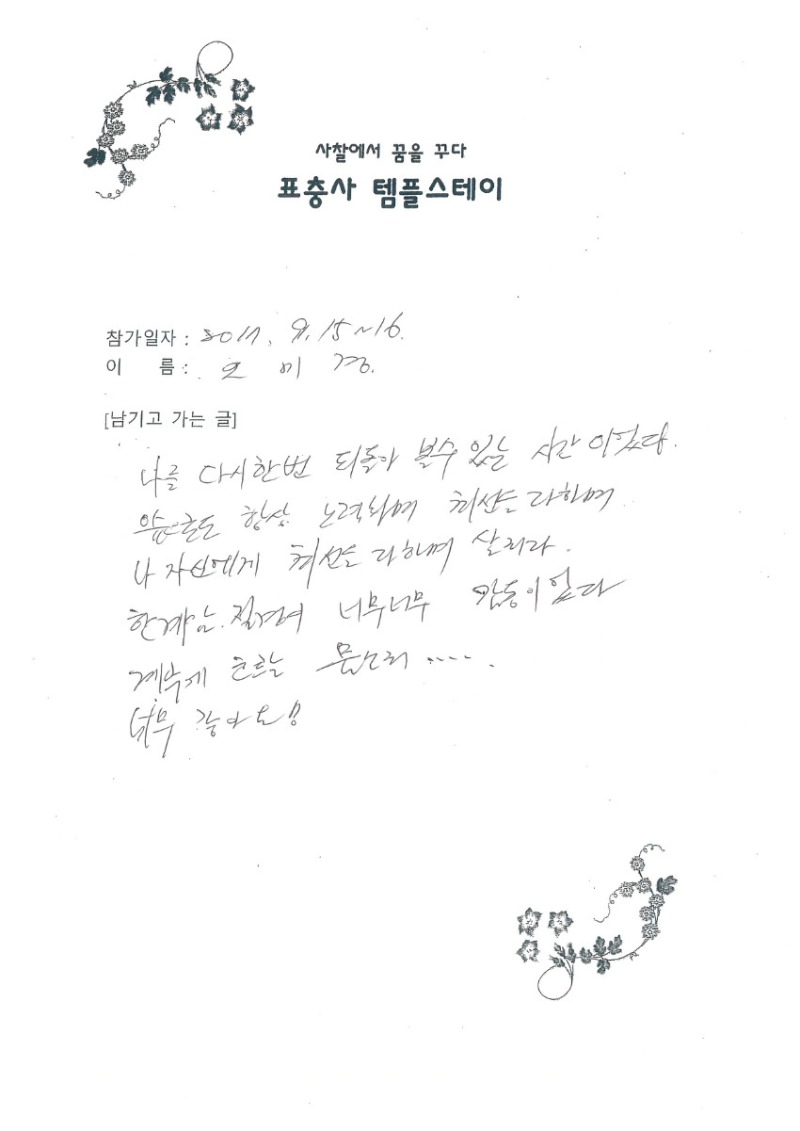 사찰에서 꿈을 꾸다
표충사 템플스테이
참가일자 : 2017. 9. 15~16.
이 름 : 오 미 경.
[남기고 가는 글]
나를 다시한번 되돌아 볼수 있는 시간이었다.
항상 노력하며 최선을 다하며
나 자신에게 최선을 다하며 살리라.
너무너무 감동이었다
흐르는 물소리 .....
너무 좋아요!!